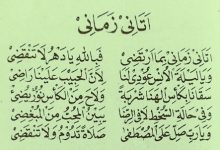 اَتَانِیْ زَمَانِیْ
اَتَانِیْ زَمَانِیْ بِمَا اَرْتَضِیْ فَبِاللهِ يَا دَهْرُ لَا تَنْقَضِیْ
وَيَا لَيْلَةَ الْاُنْسِ عُوْدِیْ لَنَا لِاَنَّ الْحَبِيْبَ عَلَيْنَا رَاضِیْ
سَقَانَا بِكَأْسِ الْهَنَا شَرْبَةً وَلَاحَ مِنَ الْكَأْسِ نُوْرٌ يُضِیْ
وَفِیْ حَالَةِ السُّخْطِ لَا فِی الرِّضَا يَبِيْنُ الْمُحِبُّ مِنَ الْمُبْغِضِیْ
وَيَا رَبِّ صَلِّ عَلَى الْمُصْطَفٰى صَلَاةً تَدُوْمُ وَلَا تَنْقَضِیْ